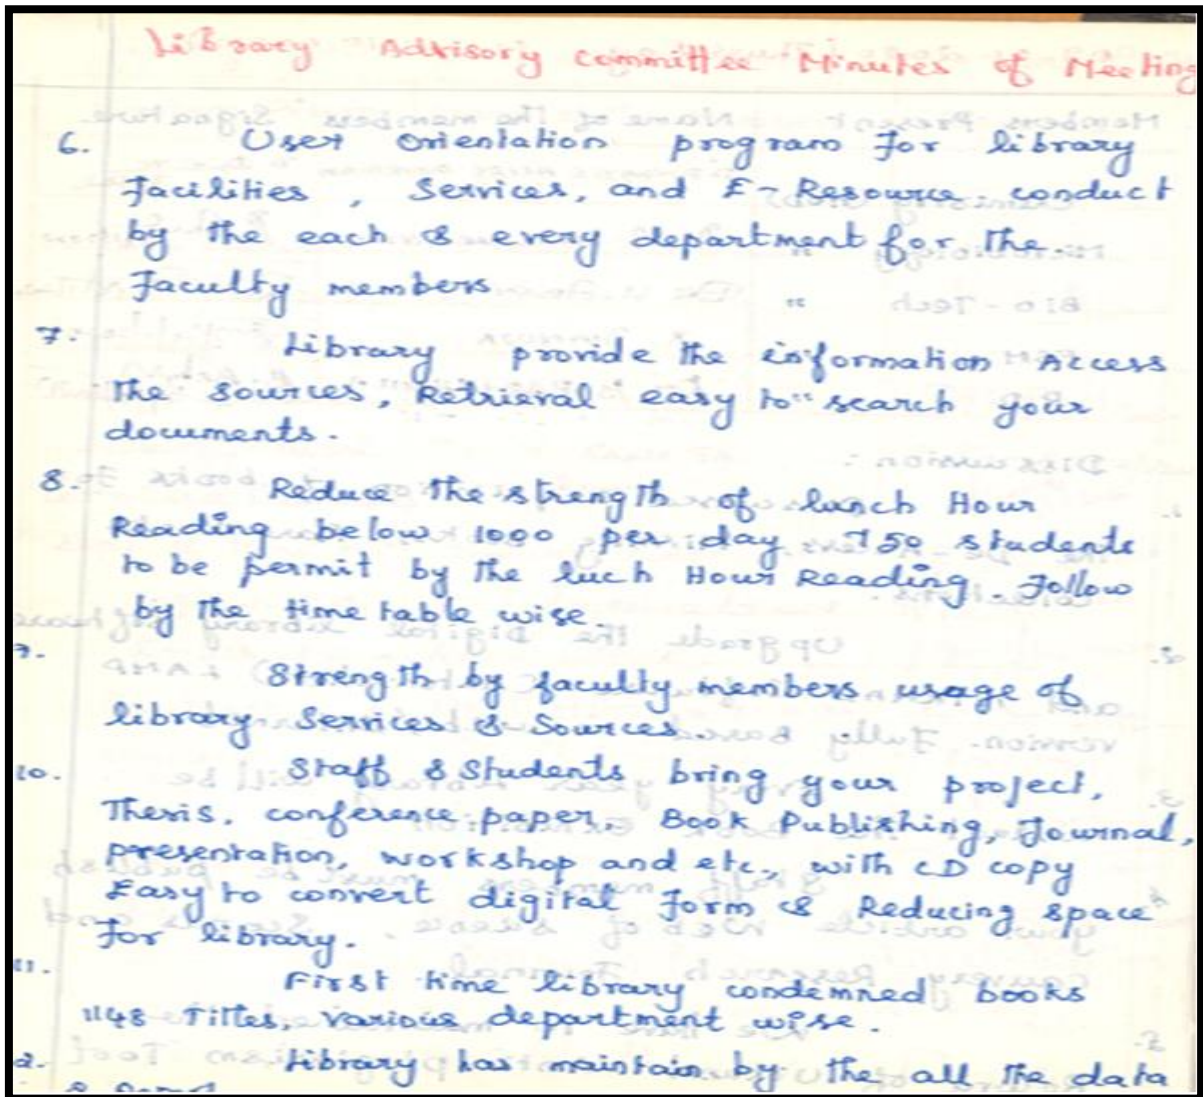 Library Advisory Committee Minutes of Meeting
6. User Orientation program for library
facilities, Services, and E-Resource conduct
by the each & every department for the.
Faculty members
7. Library provide the information Access
The Sources, Retrieval easy to search your
documents.
8. Reduce the strength of lunch Hour
Reading below 1000 per day 750 students
to be permit by the luch Hour Reading. Follow
by the time table wise.
9.
Strength by faculty members usage of
library Services & Sources.
10. Staff & Students bring your project,
Thesis, conference paper, Book Publishing, Journal,
presentation, workshop and etc., with CD copy
Easy to convert digital form & Reducing space
for library.
11. First time library condemned books
1148 Titles, various department wise.
Library has maintain by the all the data